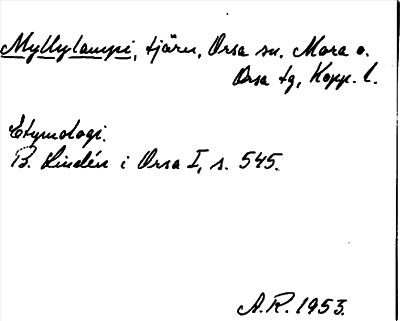 Myllylampi, tjärn, Orsa sn. Mora o.
Orsa tg, Kopp. l.
Etymologi.
B. Lindén i Orsa I, s. 545.
A.R. 1953.